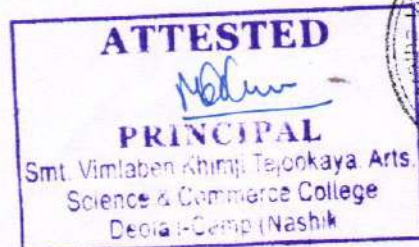 ATTESTED
PRINCIPAL
Smt. Vimlaben Khimji Tejookaya. Arts.
Science & Commerce College
Deolali-Camp (Nashik